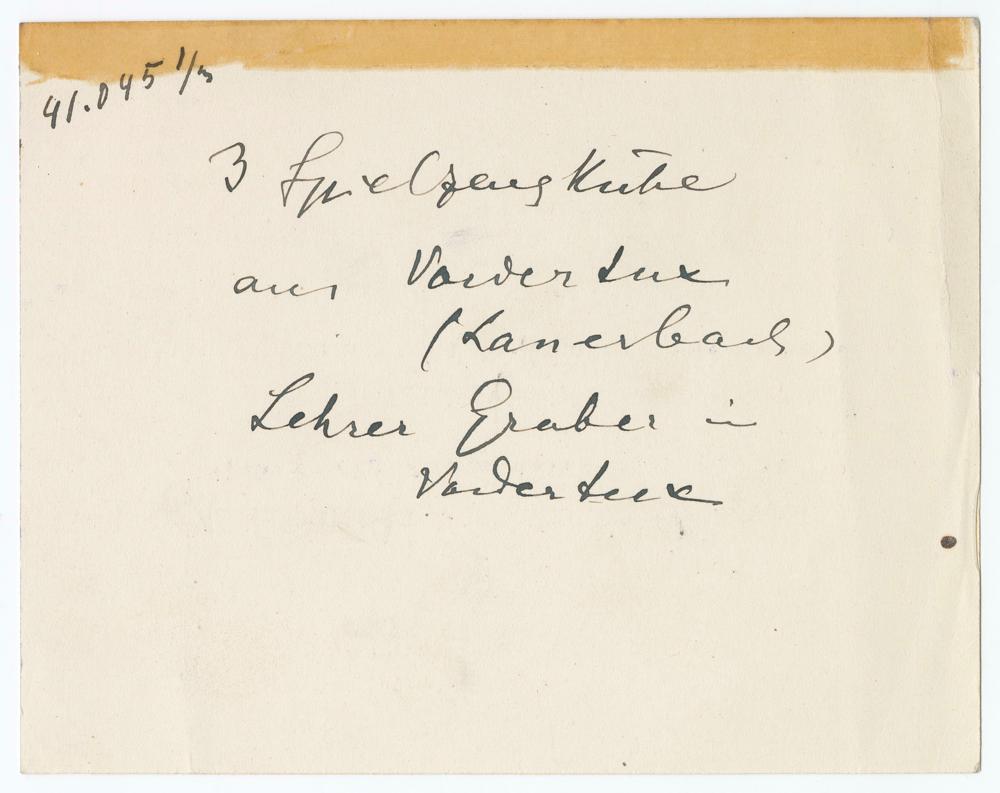 41.045 1/3
3 Spielzeug Kühe
aus Vordertux
(Lanersbach)
Lehrer Gruber in
Vordertux